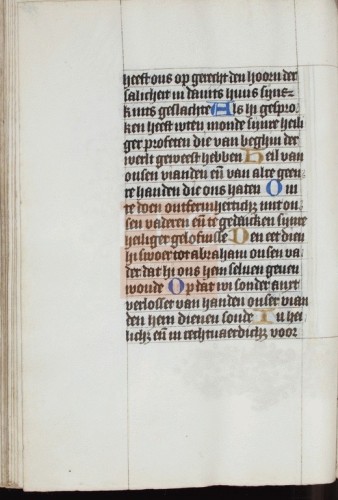 heeft ons op gerecht den hoorn der
salicheit in dauits huus syns
kints geslachte Als hi gespro
ken heeft wten monde synre heili
ger profeten die van beghin der
werlt geweest hebben Heil van
onsen vianden en̄ van alre geen
re handen die ons haten Om
te doen ontfermherticheit mit on
sen vaderen en̄ te gedencken synre
heiliger geloften Den eet dien
hi swoer tot abraham onsen va
der dat hi ons hem seluen geuen
woude Op dat wi sonder anxt
verlosset van handen onser vian
den hem dienen sonde In hei
licheit en̄ in rechtuaerdicheit voor